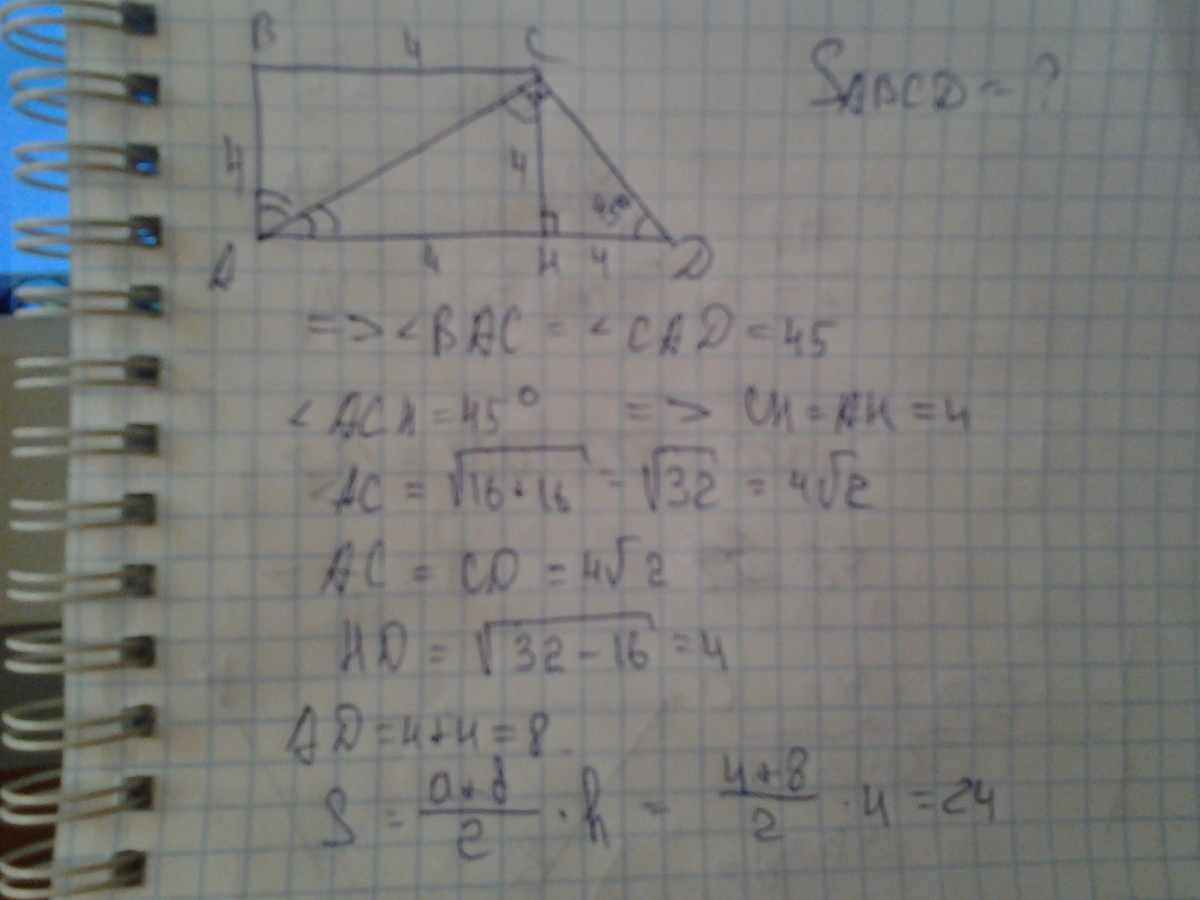 B 4 C
S ABCD = ?
4 4 45°
A 4 H 4 D
=> < BAC = < CAD = 45
< ACH = 45° => CH = AH = 4
AC = √16+16 = √32 = 4√2
AC = CD = 4√2
HD = √32-16 = 4
AD = 4+4 = 8
S = a+b/2 · h = 4+8/2 · 4 = 24